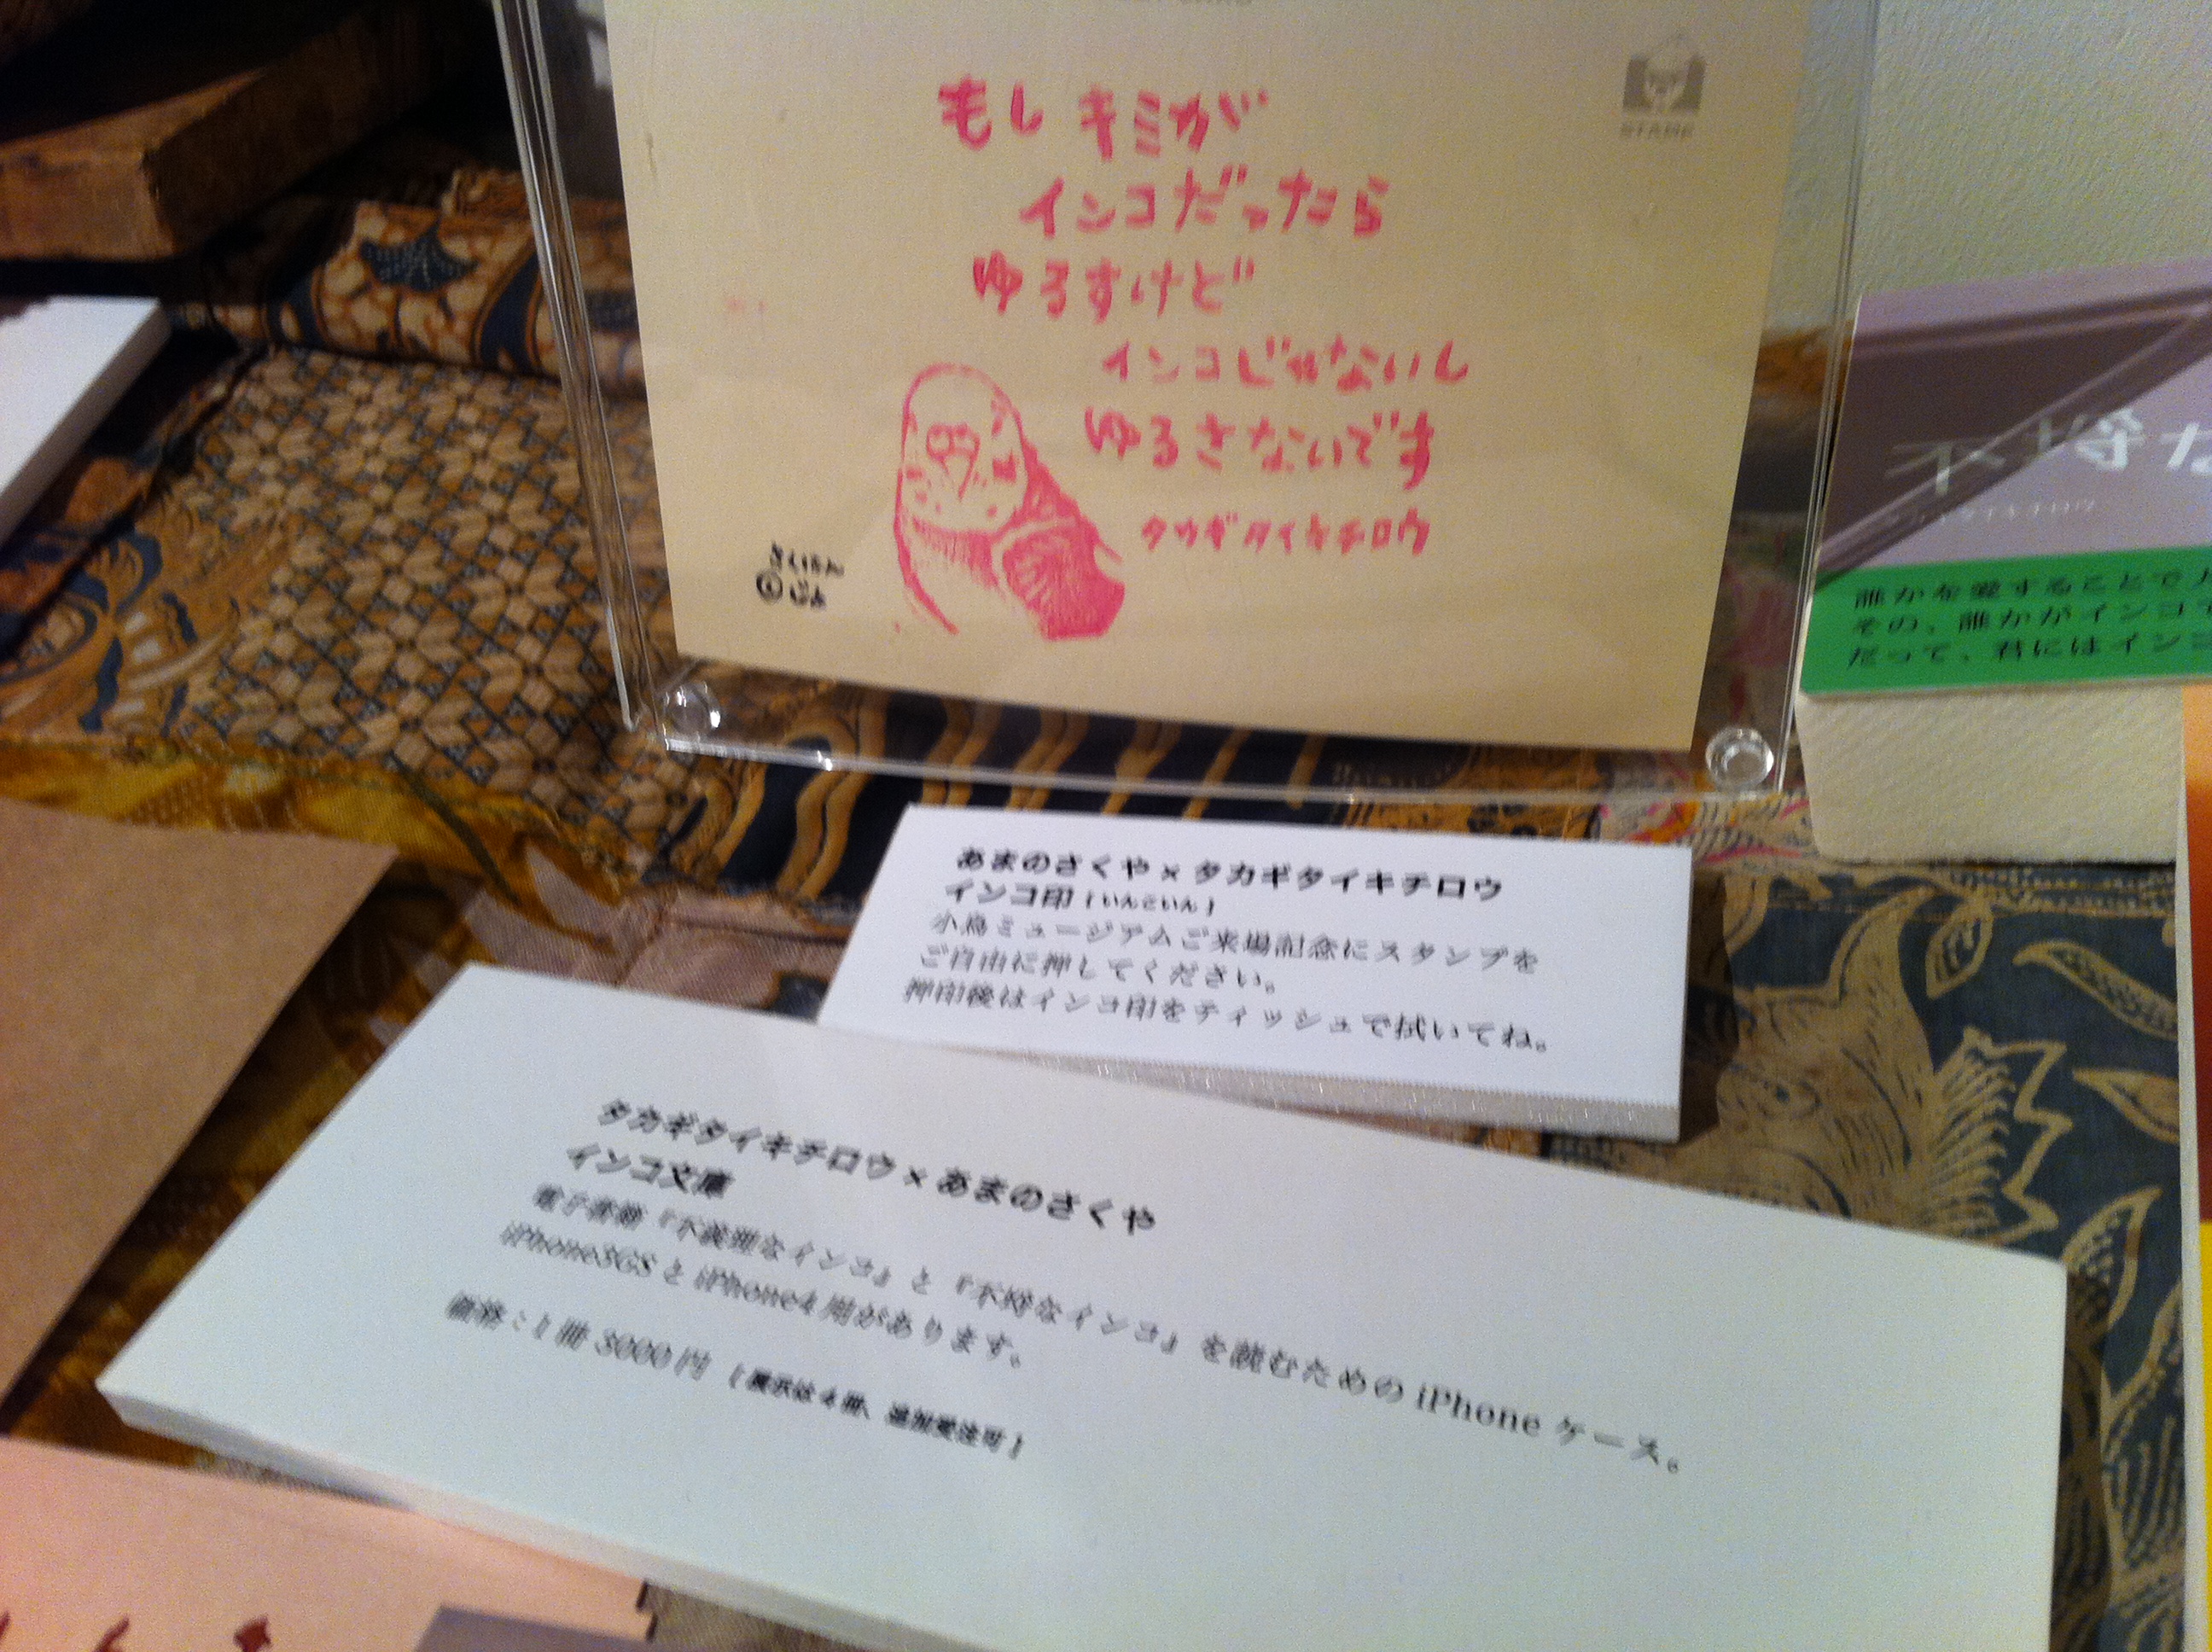 STAMP
もしキミが
インコだったら
ゆるすけど
インコじゃないし
ゆるさないです
タカギタイキチロウ
さくはん
不埒な
誰かを愛することで人
その、誰かがインコで
だって、君にはインコ
あまのさくや×タカギタイキチロウ
インコ印[いんこいん]
小鳥ミュージアムご来場記念にスタンプを
ご自由に押してください。
押印後はインコ印をティッシュで拭いてね。
タカギタイキチロウ×あまのさくや
インコ文庫
電子書籍『不義理なインコ』と『不埒なインコ』を読むためのiPhoneケース。
iPhone3GSとiPhone4用があります。
価格：1冊 3000円 [展示は4冊、追加受注可]